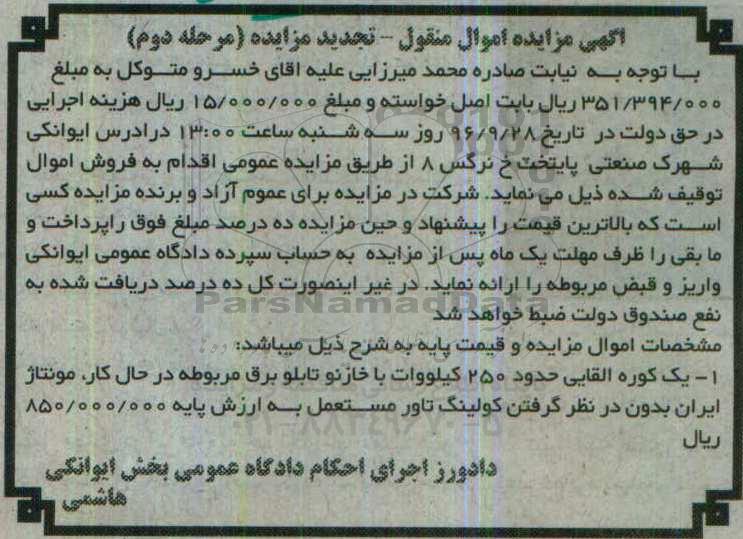 آگهی مزایده اموال منقول - تجدید مزایده (مرحله دوم)
با توجه به نیابت صادره محمد میرزایی علیه اقای خسرو متوکل به مبلغ
۳۵۱/۳۹۴/۰۰۰ ریال بابت اصل خواسته و مبلغ ۱۵/۰۰۰/۰۰۰ ریال هزینه اجرایی
در حق دولت در تاریخ ۹۶/۹/۲۸ روز سه شنبه ساعت ۱۳:۰۰ درادرس ایوانکی
شهرک صنعتی پایتخت خ نرگس ۸ از طریق مزایده عمومی اقدام به فروش اموال
توقیف شده ذیل می نماید. شرکت در مزایده برای عموم آزاد و برنده مزایده کسی
است که بالاترین قیمت را پیشنهاد و حین مزایده ده درصد مبلغ فوق راپرداخت و
ما بقی را ظرف مهلت یک ماه پس از مزایده به حساب سپرده دادگاه عمومی ایوانکی
واریز و قبض مربوطه را ارائه نماید. در غیر اینصورت کل ده درصد دریافت شده به
ParsNamadData
نفع صندوق دولت ضبط خواهد شد
مشخصات اموال مزایده و قیمت پایه به شرح ذیل میباشد:
۱- یک کوره القایی حدود ۲۵۰ کیلووات با خازنو تابلو برق مربوطه در حال کار، مونتاژ
ایران بدون در نظر گرفتن کولینگ تاور مستعمل به ارزش پایه ۸۵۰/۰۰۰/۰۰۰
ریال
دادورز اجرای احکام دادگاه عمومی بخش ایوانکی
هاشمی